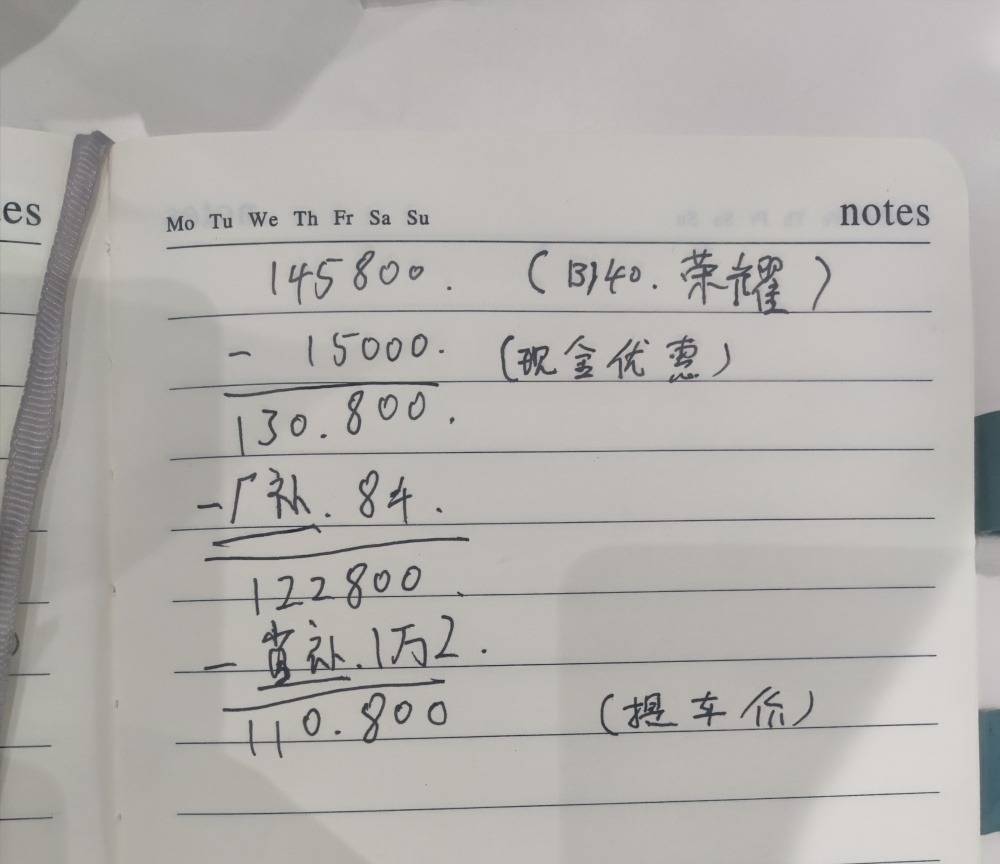 es
Mo Tu We Th Fr Sa Su notes
145800. (B140. 荣耀)
- 15000. (现金优惠)
130.800.
-厂补. 8千.
122800.
-省补. 1万2.
110.800 (提车价)